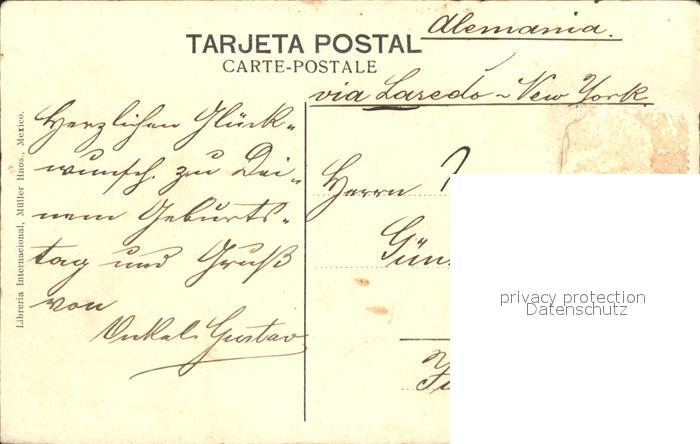 Alemania.
TARJETA POSTAL
CARTE-POSTALE
via Laredo - New York.
Herzlichen Glück-
wunsch zu Dei-
nem Geburts-
tag und Gruß
von
Onkel Gustav
Herrn
Gün
privacy protection
Datenschutz
Libreria Internacional, Müller Hnos., Mexico.